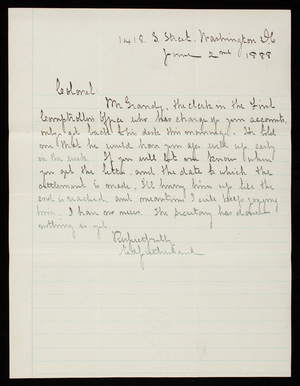 1418. S Street. Washington D.C
June 2nd 1888
Colonel:
Mr Grandy, the clerk in the First
Comptroller's Office who has charge of your account,
only got back this desk this morning. He told
me that he would have you up early
in the week. If you will let me know when
you get the letter and the date to which the
settlement is made, I'll hurry him up till the
end is reached, and meantime I will keep jogging
him. I have no news. The Secretary has done
nothing as yet.
Respectfully